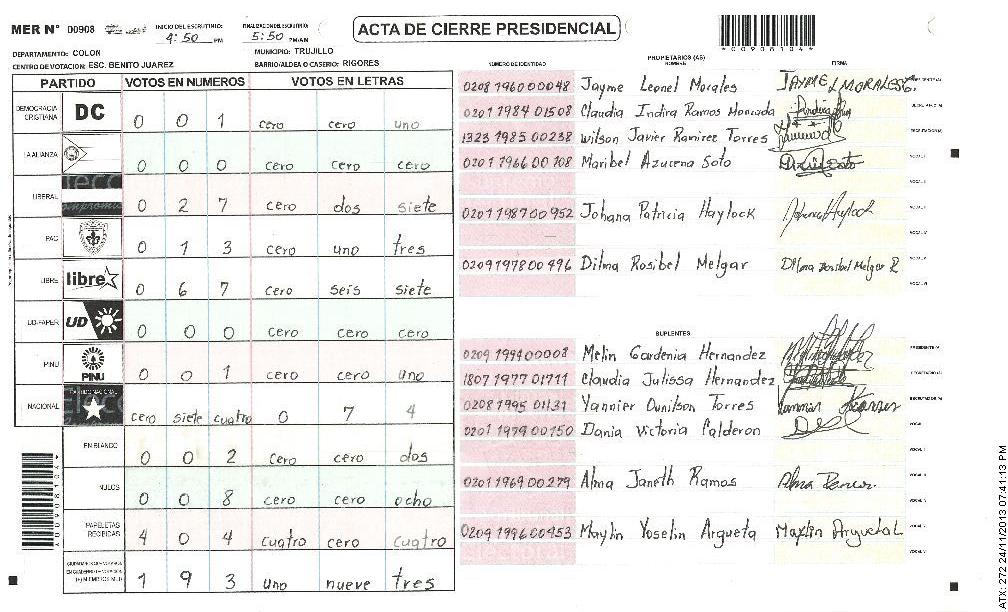 MER Nº 00908
INICIO DEL ESCRUTINIO: 4:50 PM
FINALIZACION DEL ESCRUTINIO: 5:50 PM/AM
ACTA DE CIERRE PRESIDENCIAL
*00908104*
DEPARTAMENTO: COLON
MUNICIPIO: TRUJILLO
CENTRO DE VOTACION: ESC. BENITO JUAREZ
BARRIO/ALDEA O CASERIO: RIGORES
PARTIDO VOTOS EN NUMEROS VOTOS EN LETRAS
DEMOCRACIA CRISTIANA DC 0 0 1 cero cero uno
LA ALIANZA 0 0 0 cero cero cero
LIBERAL 0 2 7 cero dos siete
PAC 0 1 3 cero uno tres
LIBRE libre 0 6 7 cero seis siete
UD-FAPER UD 0 0 0 cero cero cero
PINU PINU 0 0 1 cero cero uno
NACIONAL cero siete cuatro 0 7 4
EN BLANCO 0 0 2 cero cero dos
NULOS 0 0 8 cero cero ocho
PAPELETAS RECIBIDAS 4 0 4 cuatro cero cuatro
1 9 3 uno nueve tres
PROPIETARIOS (AS)
NUMERO DE IDENTIDAD NOMBRE FIRMA
0208 1960 00048 Jayme Leonel Morales JAYME L MORALES
0201 1984 01508 Claudia Indira Ramos Honzada
1323 1985 00238 Wilson Javier Ramirez Torres
0201 1966 00708 Maribel Azucena Soto
0201 1987 00952 Johana Patricia Haylock Johana Haylock
0209 1978 00496 Dilma Rosibel Melgar Dilma Rosibel Melgar R
SUPLENTES
0209 1994 00008 Melin Gardenia Hernandez
1807 1977 01711 Claudia Julissa Hernandez
0208 1995 01131 Yannier Ounilson Torres
0201 1979 00150 Dania Victoria Calderon
0201 1969 00279 Alma Janeth Ramos Alma Ramos
0209 1996 00453 Maylin Yoselin Argueta Maylin Argueta L
ATX: 272 24/11/2013 07:41:13 PM